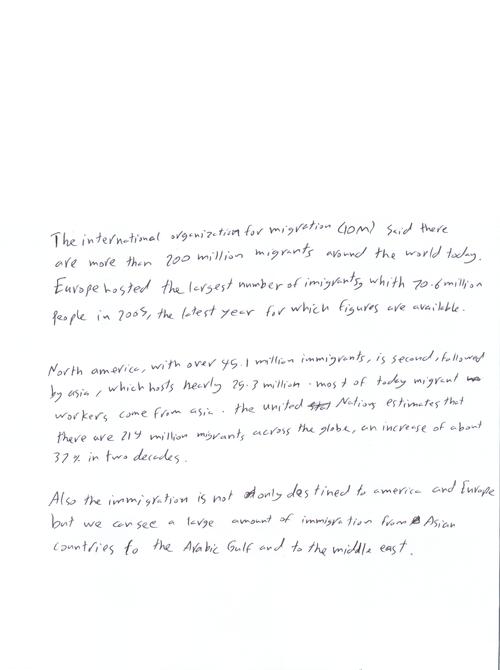 The international organization for migration (IOM) said there
are more than 200 million migrants around the world today.
Europe hosted the largest number of imigrants, whith 70.6 million
people in 2005, the latest year for which figures are available.
North america, with over 45.1 million immigrants, is second, followed
by asia, which hosts nearly 25.3 million. most of today migrant
workers come from asia. the united Nations estimates that
there are 214 million migrants across the globe, an increase of about
37% in two decades.
Also the immigration is not only destined to america and Europe
but we can see a large amount of immigration from Asian
countries to the Arabic Gulf and to the middle east.